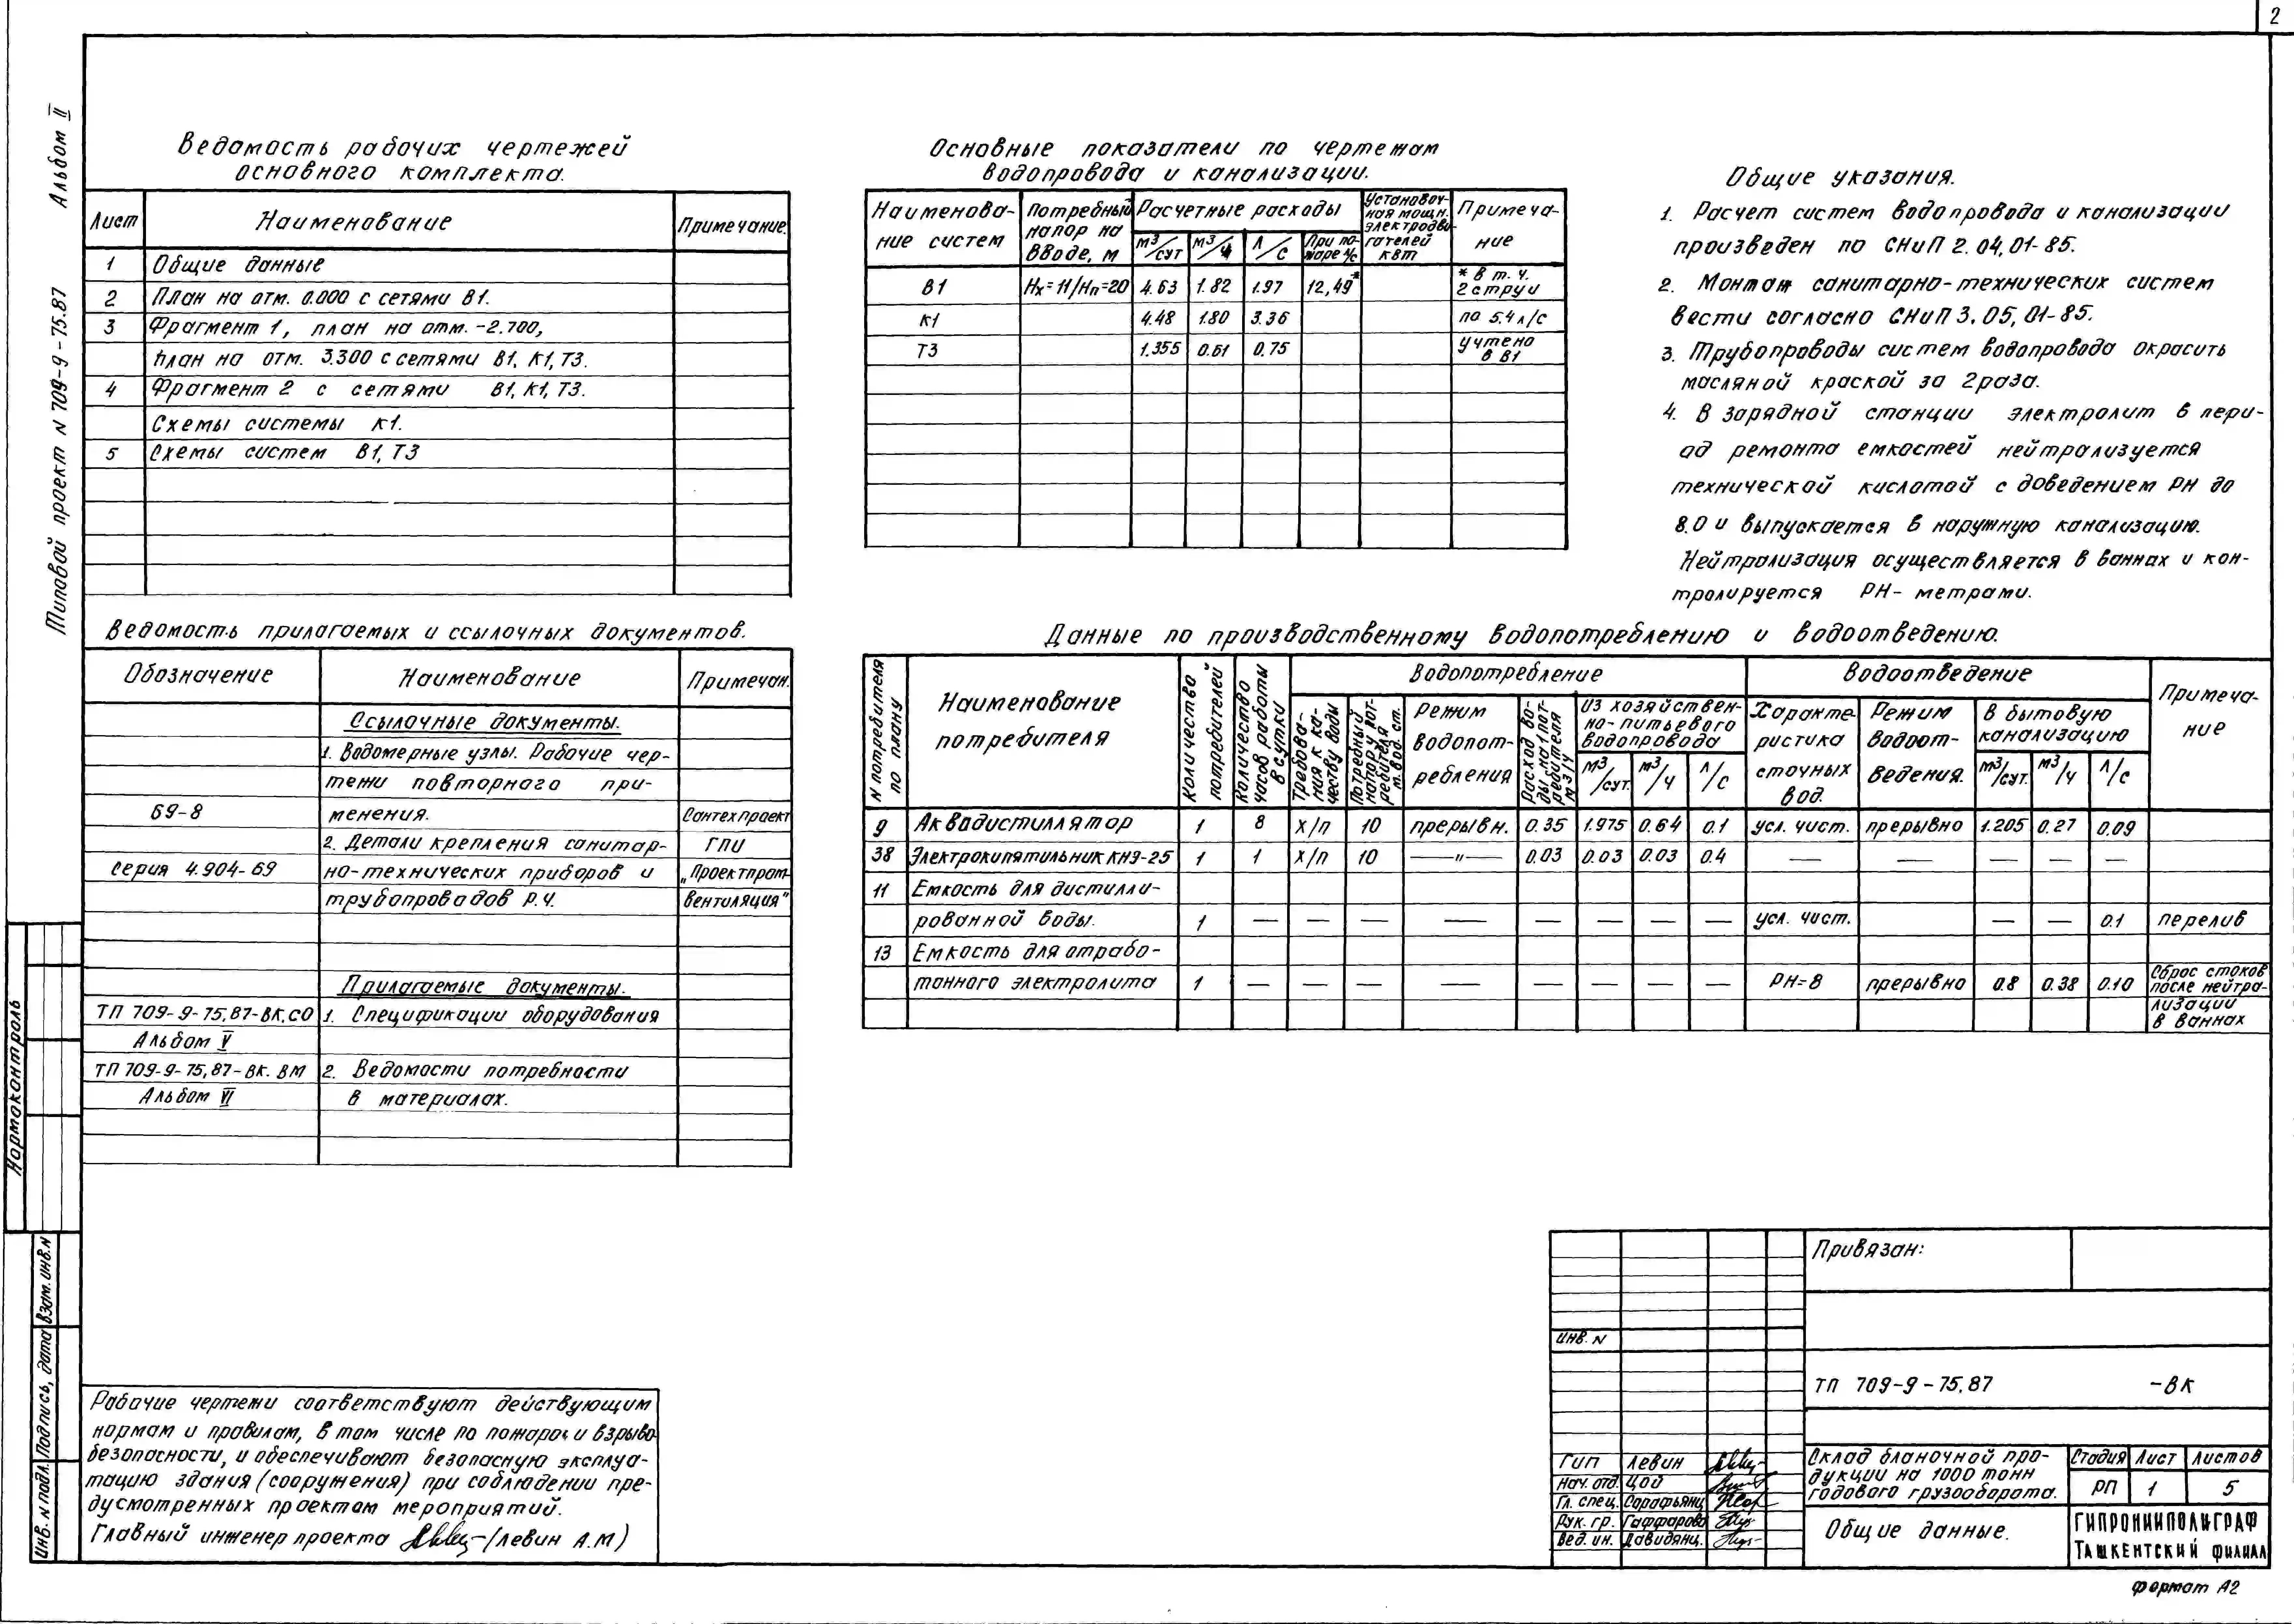 2
Альбом II
Типовой проект N 709-9-75.87
Ведомость рабочих чертежей
основного комплекта.
Лист Наименование Примечание.
1 Общие данные
2 План на отм. 0.000 с сетями В1.
3 Фрагмент 1, план на отм. -2.700,
план на отм. 3.300 с сетями В1, К1, Т3.
4 Фрагмент 2 с сетями В1, К1, Т3.
Схемы системы К1.
5 Схемы систем В1, Т3
Ведомость прилагаемых и ссылочных документов.
Обозначение Наименование Примечан.
Ссылочные документы.
1. Водомерные узлы. Рабочие чер-
тежи повторного при-
69-8 менения. Сантехпроект
2. Детали крепления санитар- ГПИ
Серия 4.904-69 но-технических приборов и „Проектпром-
трубопроводов Р.Ч. вентиляция"
Прилагаемые документы.
ТП 709-9-75.87-ВК.СО 1. Спецификации оборудования
Альбом V
ТП 709-9-75.87-ВК.ВМ 2. Ведомости потребности
Альбом VI в материалах.
Основные показатели по чертежам
водопровода и канализации.
Наименова-
ние систем
Потребный
напор на
вводе, м
Расчетные расходы
м3/сут м3/ч л/с При по-
жаре л/с
Установоч-
ная мощн.
электродви-
гателей
квт
Примеча-
ние
В1 Нх=11/Нп=20 4.63 1.82 1.97 12,49* * в т. ч.
2 струи
К1 4.48 1.80 3.36 по 5.4 л/с
Т3 1.355 0.61 0.75 учтено
в В1
Общие указания.
1. Расчет систем водопровода и канализации
произведен по СНиП 2.04.01-85.
2. Монтаж санитарно-технических систем
вести согласно СНиП 3.05.01-85.
3. Трубопроводы систем водопровода окрасить
масляной краской за 2 раза.
4. В зарядной станции электролит в пери-
од ремонта емкостей нейтрализуется
технической кислотой с доведением РН до
8.0 и выпускается в наружную канализацию.
Нейтрализация осуществляется в ваннах и кон-
тролируется РН- метрами.
Данные по производственному водопотреблению и водоотведению.
N потребителя
по плану
Наименование
потребителя
Количество
потребителей
Количество
часов работы
в сутки
Водопотребление
Требова-
ния к ка-
честву воды
Потребный
напор у пот-
ребителя
м. вод. ст.
Режим
водопот-
ребления
Расход во-
ды на 1 пот-
ребителя
м3/ч
Из хозяйствен-
но-питьевого
водопровода
м3/сут. м3/ч л/с
Водоотведение
Характе-
ристика
сточных
вод.
Режим
водоот-
ведения.
В бытовую
канализацию
м3/сут. м3/ч л/с
Примеча-
ние
9 Аквадистиллятор 1 8 х/п 10 прерывн. 0.35 1.975 0.64 0.1 усл. чист. прерывно 1.205 0.27 0.09
38 Электрокипятильник КНЭ-25 1 1 х/п 10 —"— 0.03 0.03 0.03 0.4 — — — — —
11 Емкость для дистилли-
рованной воды. 1 — — — — — — — — усл. чист. — — 0.1 перелив
13 Емкость для отрабо-
танного электролита 1 — — — — — — — — РН=8 прерывно 0.8 0.38 0.10 Сброс стоков
после нейтра-
лизации
в ваннах
Нормоконтроль
Взам. инв. N
Подпись, дата
Инв. N подл.
Рабочие чертежи соответствуют действующим
нормам и правилам, в том числе по пожаро и взрыво-
безопасности, и обеспечивают безопасную эксплуа-
тацию здания (сооружения) при соблюдении пре-
дусмотренных проектом мероприятий.
Главный инженер проекта (Левин А.М)
Привязан:
Инв. N
ТП 709-9-75.87 -ВК
ГИП Левин
Нач. отд. Цой
Гл. спец. Сарафьянц
Рук. гр. Гаффарова
Вед. ин. Давидянц.
Склад бланочной про-
дукции на 1000 тонн
годового грузооборота.
Стадия Лист Листов
РП 1 5
Общие данные.
ГИПРОНИИПОЛИГРАФ
ТАШКЕНТСКИЙ ФИЛИАЛ
Формат А2